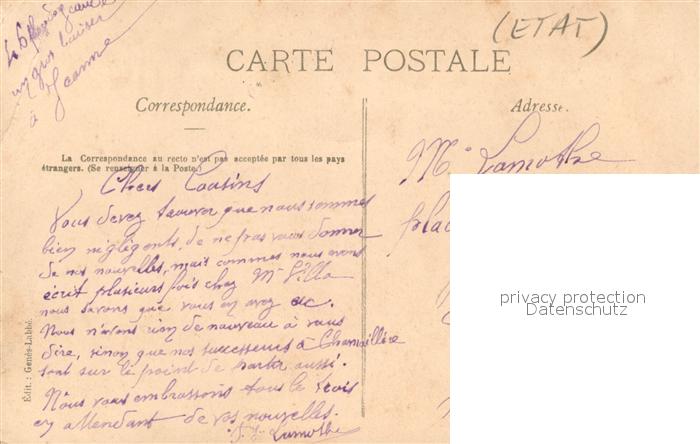 un gros baiser
à Jeanne
(ETAT)
CARTE POSTALE
Correspondance.
Adresse.
La Correspondance au recto n'est pas acceptée par tous les pays
étrangers. (Se renseigner à la Poste.)
Mr Lamothe
Chers Cousins
Vous devez trouver que nous sommes
bien négligents, de ne pas vous donner
de nos nouvelles, mais commes nous avons
écrit plusieurs fois chez Mr Villa
nous savons que vous en avez eu.
Nous n'avons rien de nouveau à vous
dire, sinon que nos successeurs à Chamaillère
sont sur le point de partir aussi.
Nous vous embrassons tous le trois
en attendant de vos nouvelles.
Lamothe
Édit.: Genès-Labbé.
privacy protection
Datenschutz